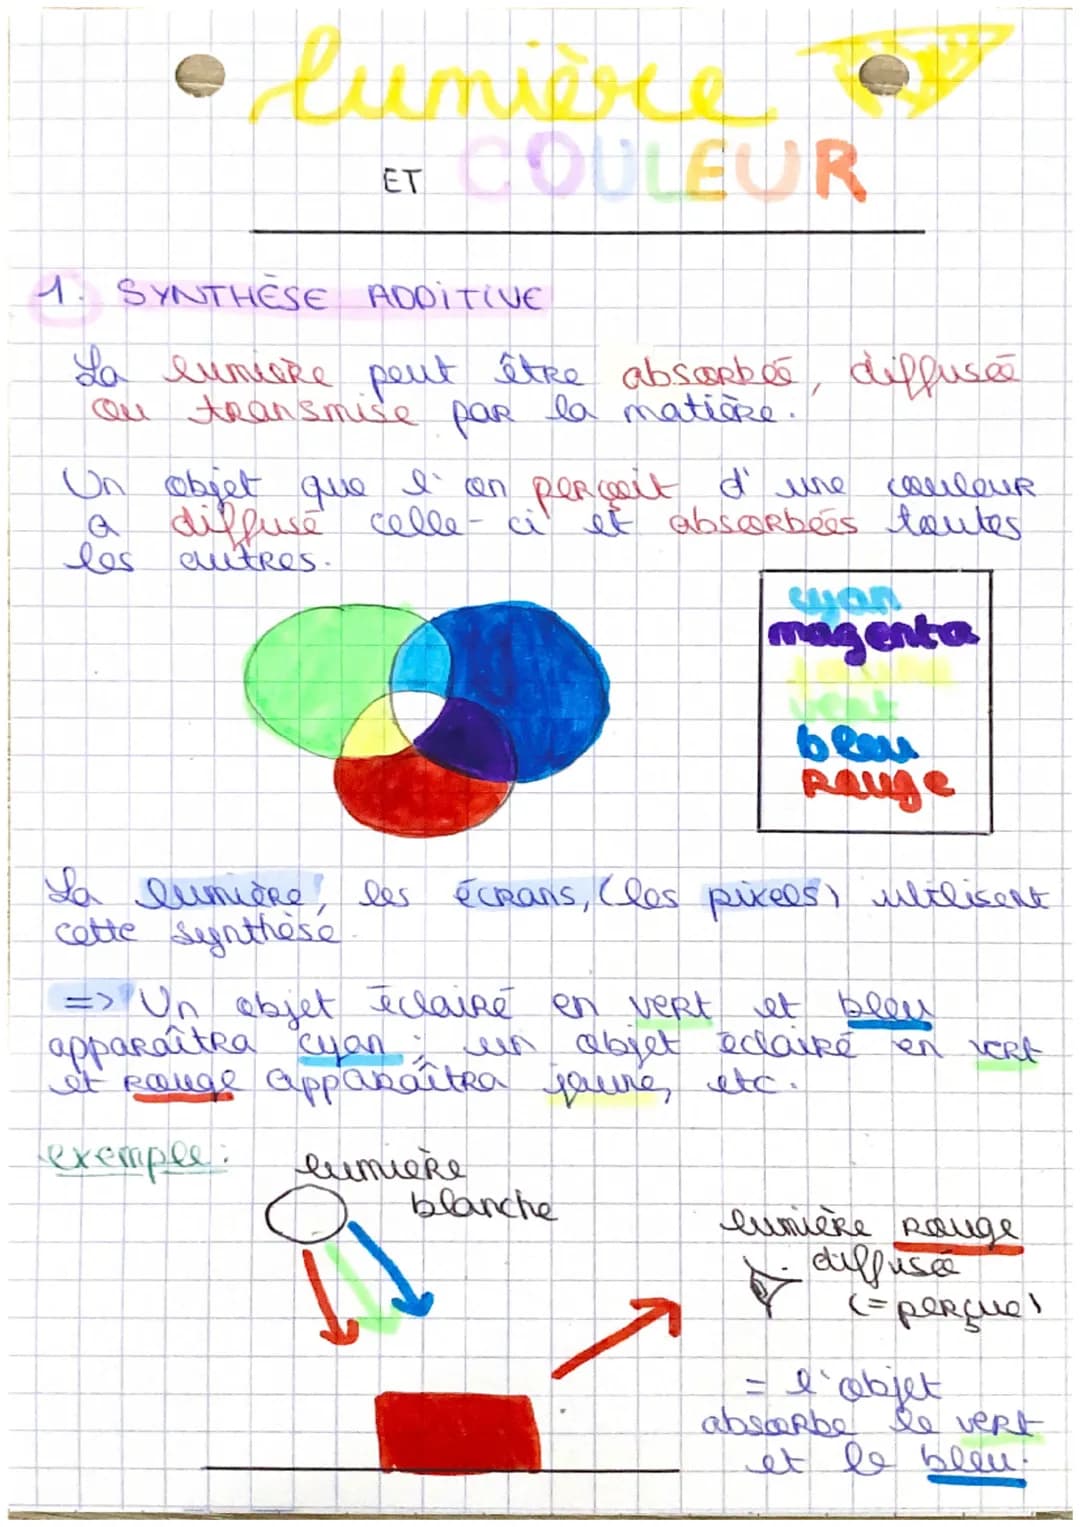 lumière
ET COULEUR
1. SYNTHÈSE ADDITIVE
La lumière peut être absorbée, diffusée
ou transmise par la matière.
Un objet que l'on perçoit d'une couleur
a diffusé celle-ci et absorbées toutes
les autres.
cyan
magenta
jaune
vert
bleu
rouge
La lumière, les écrans, (les pixels) utilisent
cette synthèse.
=> Un objet éclairé en vert et bleu
apparaîtra cyan ; un objet éclairé en vert
et rouge apparaîtra jaune, etc.
exemple :
lumière
blanche
lumière rouge
diffusée
(= perçue)
= l'objet
absorbe le vert
et le bleu.